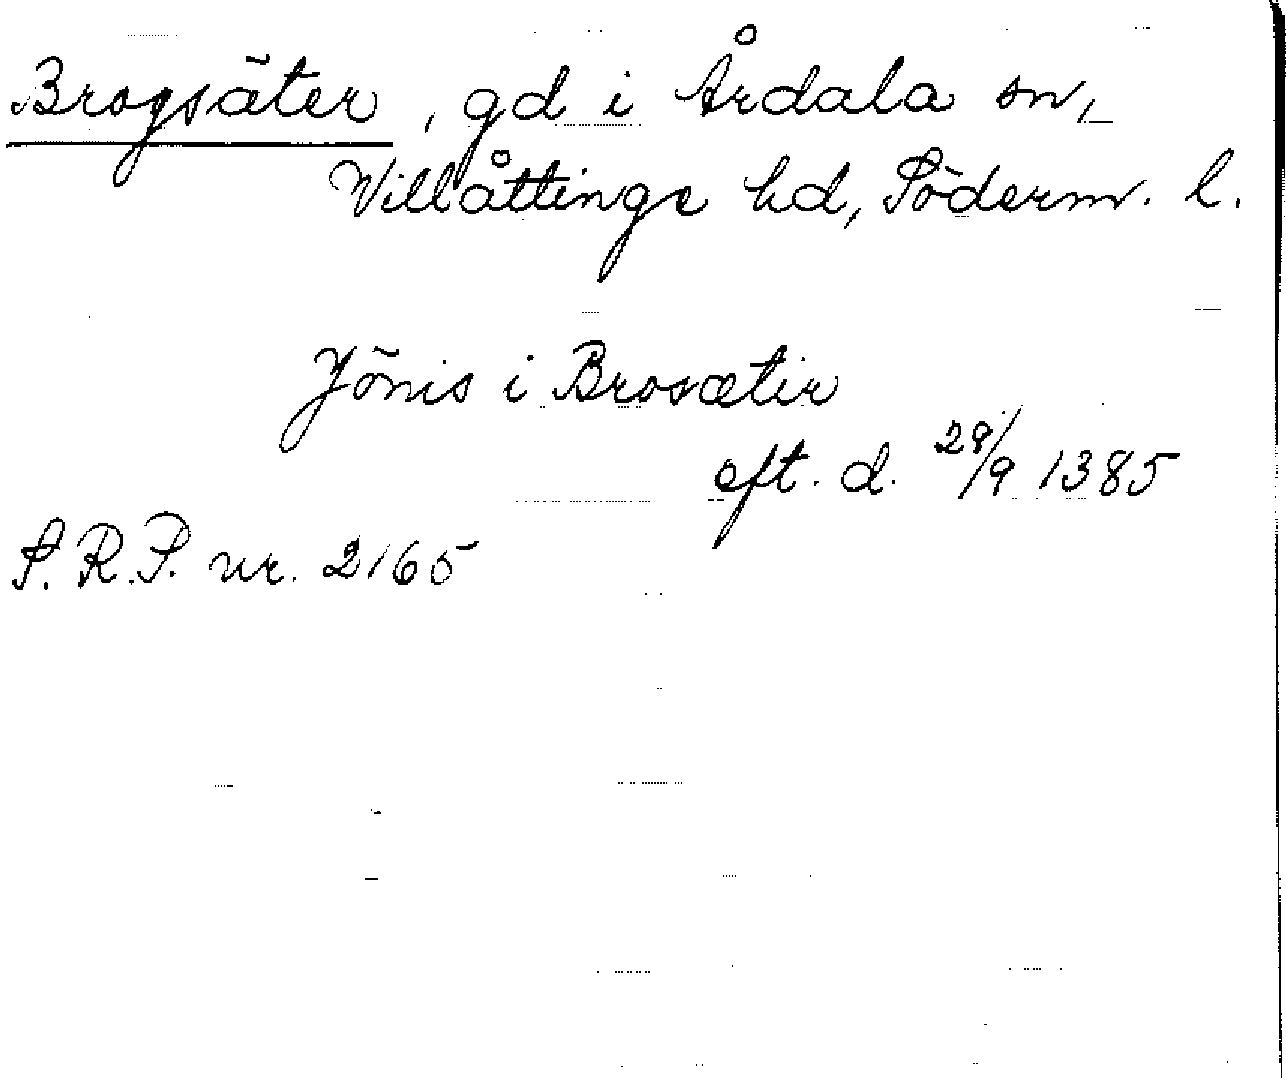 Brogsäter, gd i Årdala sn,
Villåttinge hd, Söderm. l.
Jönis i Brosætir
eft. d. 29/9 1385
S.R.P. nr. 2165